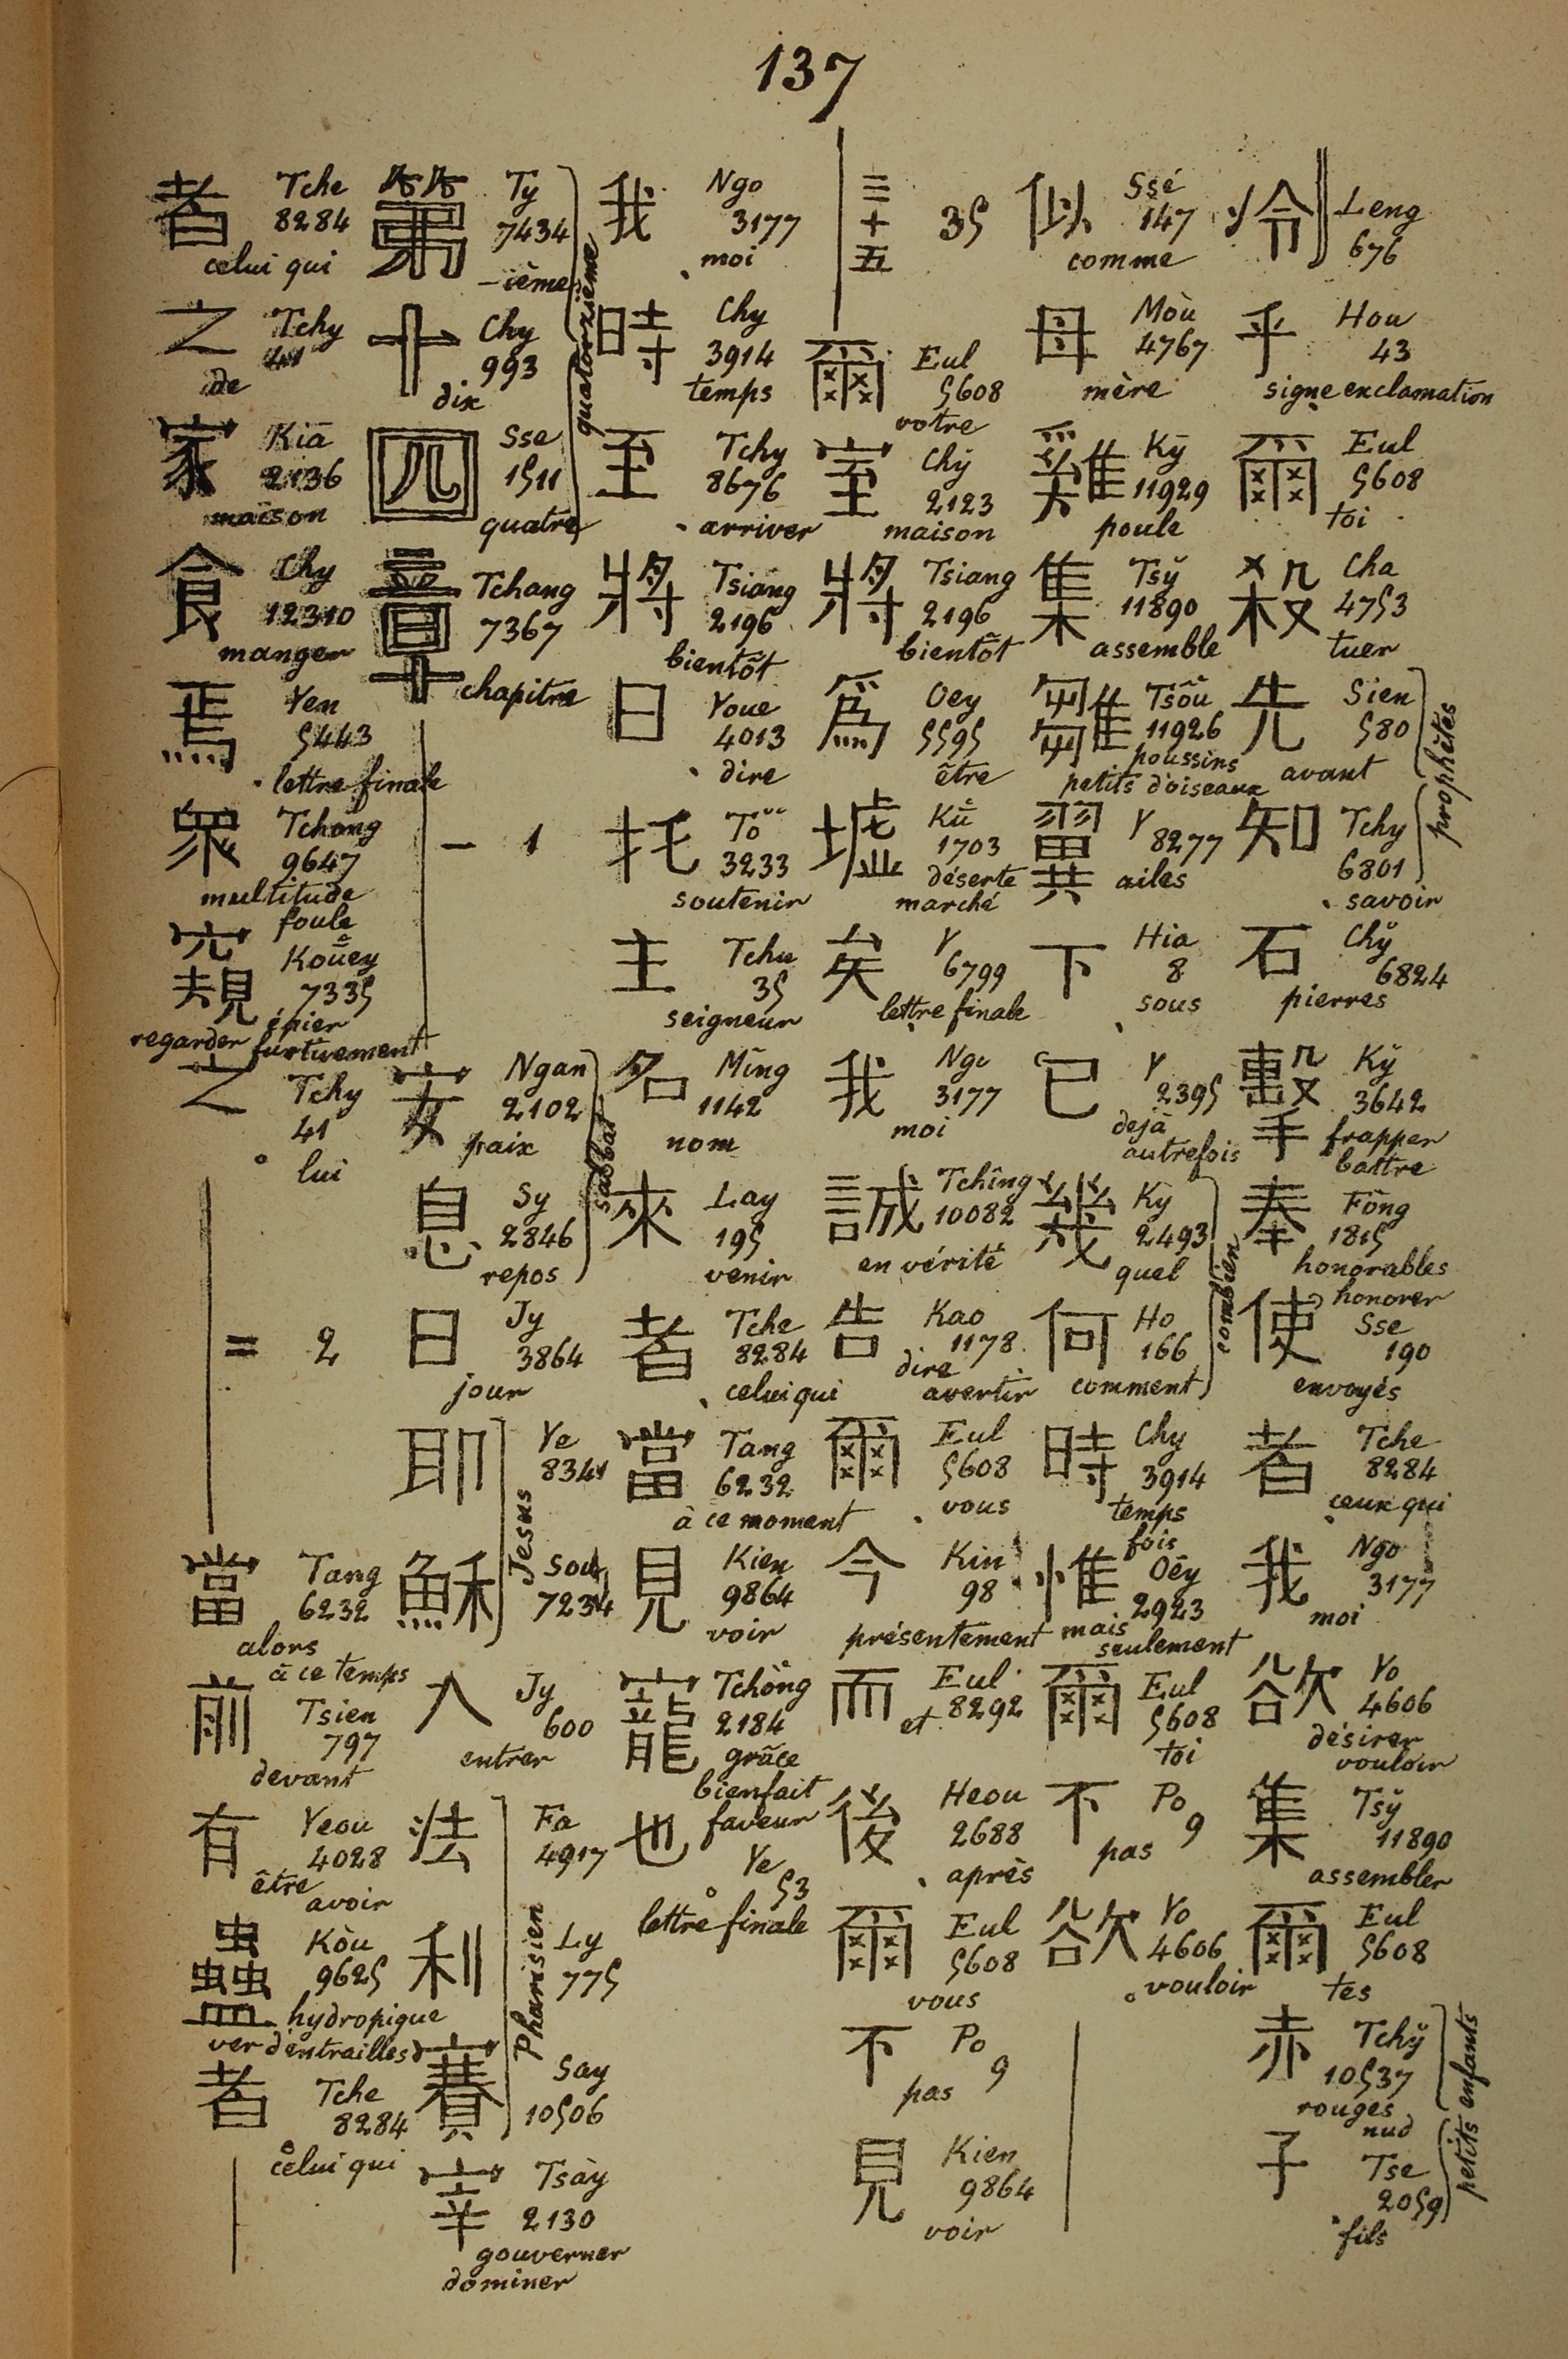 137
冷 Leng
676
乎 Hou
43
signe exclamation
爾 Eul
5608
toi
殺 Cha
4753
tuer
先 Sien
580
avant
知 Tchy
6801
savoir
prophètes
石 Chy
6824
pierres
擊 Ky
3642
frapper
battre
奉 Fong
1815
honorables
honorer
使 Sse
190
envoyés
者 Tche
8284
ceux qui
我 Ngo
3177
moi
欲 Yo
4606
désirer
vouloir
集 Tsy
11890
assembler
爾 Eul
5608
tes
赤 Tchy
10537
rouges
nud
子 Tse
2059
fils
petits enfants
似 Ssé
147
comme
母 Moù
4767
mère
雞 Ky
11929
poule
集 Tsy
11890
assemble
雛 Tsoû
11926
poussins
petits d'oiseaux
翼 Y
8277
ailes
下 Hia
8
sous
已 Y
2395
dejà
autrefois
幾 Ky
2493
quel
何 Ho
166
comment
combien
時 Chy
3914
temps
fois
惟 Oêy
2923
mais
seulement
爾 Eul
5608
toi
不 Po
9
pas
欲 Yo
4606
vouloir
三十五 35
爾 Eul
5608
votre
室 Chy
2123
maison
將 Tsiang
2196
bientôt
爲 Oey
5595
être
墟 Kû
1703
déserte
marché
矣 Y
6799
lettre finale
我 Ngo
3177
moi
誠 Tchîng
10082
en vérité
告 Kao
1178
dire
avertir
爾 Eul
5608
vous
今 Kin
98
présentement
而 Eul
8292
et
後 Heou
2688
après
爾 Eul
5608
vous
不 Po
9
pas
見 Kien
9864
voir
我 Ngo
3177
moi
時 Chy
3914
temps
至 Tchy
8676
arriver
將 Tsiang
2196
bientôt
曰 Youe
4013
dire
托 To
3233
soutenir
主 Tchu
35
seigneur
名 Mîng
1142
nom
來 Lay
195
venir
者 Tche
8284
celui qui
當 Tang
6232
à ce moment
見 Kien
9864
voir
寵 Tchòng
2184
grâce
bienfait
faveur
也 Ye
53
lettre finale
第 Ty
7434
-ième
十 Chy
993
dix
四 Sse
1511
quatre
quatorzième
章 Tchang
7367
chapitre
一 1
安 Ngan
2102
paix
息 Sy
2846
repos
sabbat
日 Jy
3864
jour
耶 Ye
8341
穌 Sou
7234
Jesus
入 Jy
600
entrer
法 Fa
4917
利 Ly
775
賽 Say
10506
Pharisien
宰 Tsày
2130
gouverner
dominer
者 Tche
8284
celui qui
之 Tchy
41
de
家 Kia
2136
maison
食 Chy
12310
manger
焉 Yen
5443
lettre finale
衆 Tchong
9647
multitude
foule
窺 Koûey
7335
épier
regarder furtivement
之 Tchy
41
lui
二 2
當 Tang
6232
alors
à ce temps
前 Tsien
797
devant
有 Yeou
4028
être
avoir
蠱 Kòu
9625
hydropique
ver d'entrailles
者 Tche
8284
celui qui